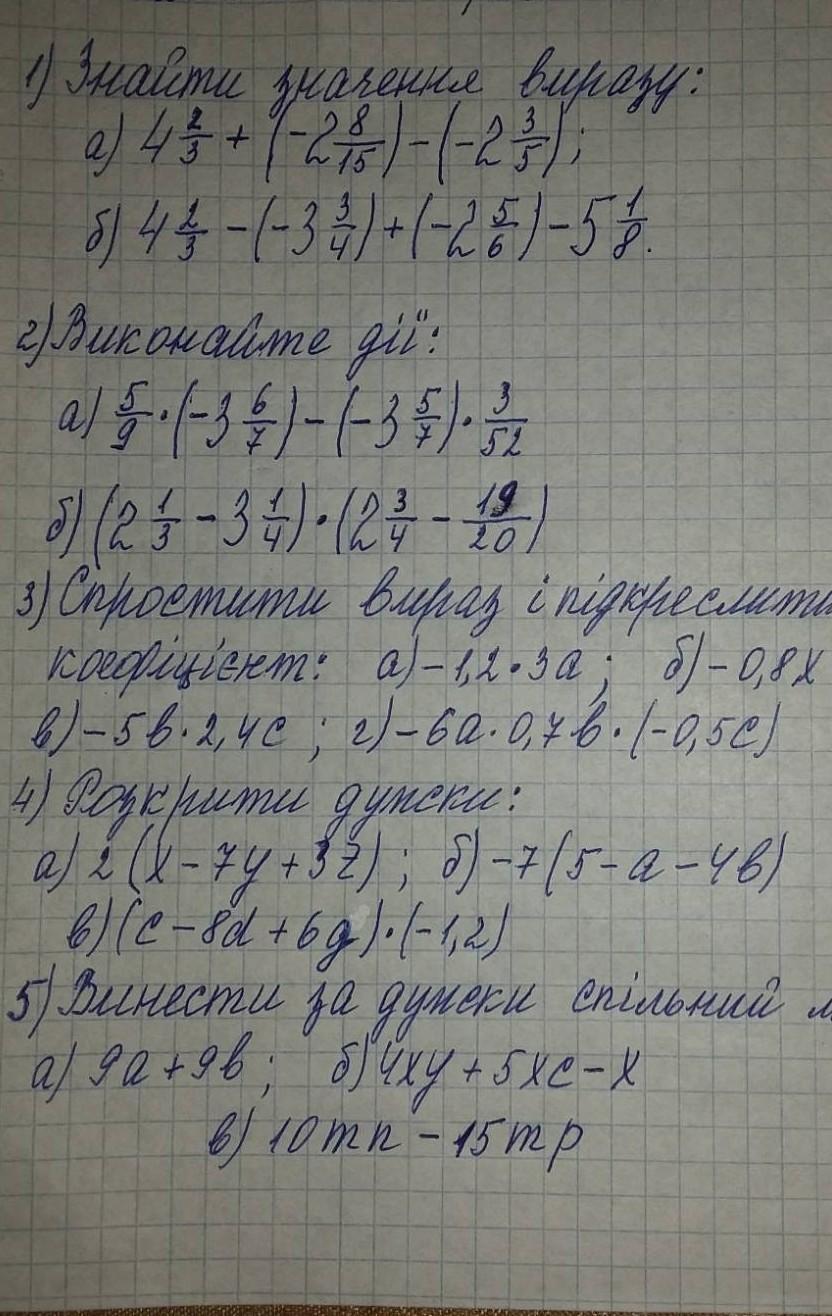 1) Знайти значення виразу:
а) 4 2/3 + (-2 8/15) - (-2 3/5);
б) 4 2/3 - (-3 3/4) + (-2 5/6) - 5 1/8.
2) Виконайте дії:
а) 5/9 · (-3 6/7) - (-3 5/7) · 3/52
б) (2 1/3 - 3 1/4) · (2 3/4 - 19/20)
3) Спростити вираз і підкреслити
коефіцієнт: а) -1,2·3a; б) -0,8x
в) -5b·2,4c; г) -6a·0,7b·(-0,5c)
4) Розкрити дужки:
а) 2(x-7y+3z); б) -7(5-a-4b)
в) (c-8d+6g)·(-1,2)
5) Винести за дужки спільний
а) 9a+9b; б) 4xy+5xc-x
в) 10mn-15mp